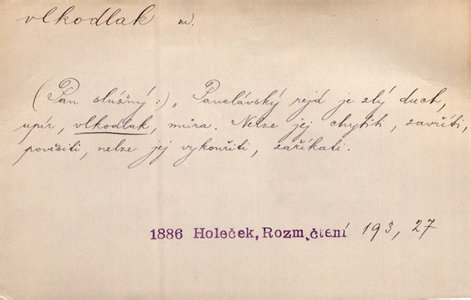 vlkodlak m.
(Pan slušný:) „Panslávský rejd je zlý duch,
upír, vlkodlak, můra. Nelze jej chytiti, zavříti,
pověsiti, nelze jej vykouřiti, zaříkati.
1886 Holeček, Rozm. čtení 193, 27